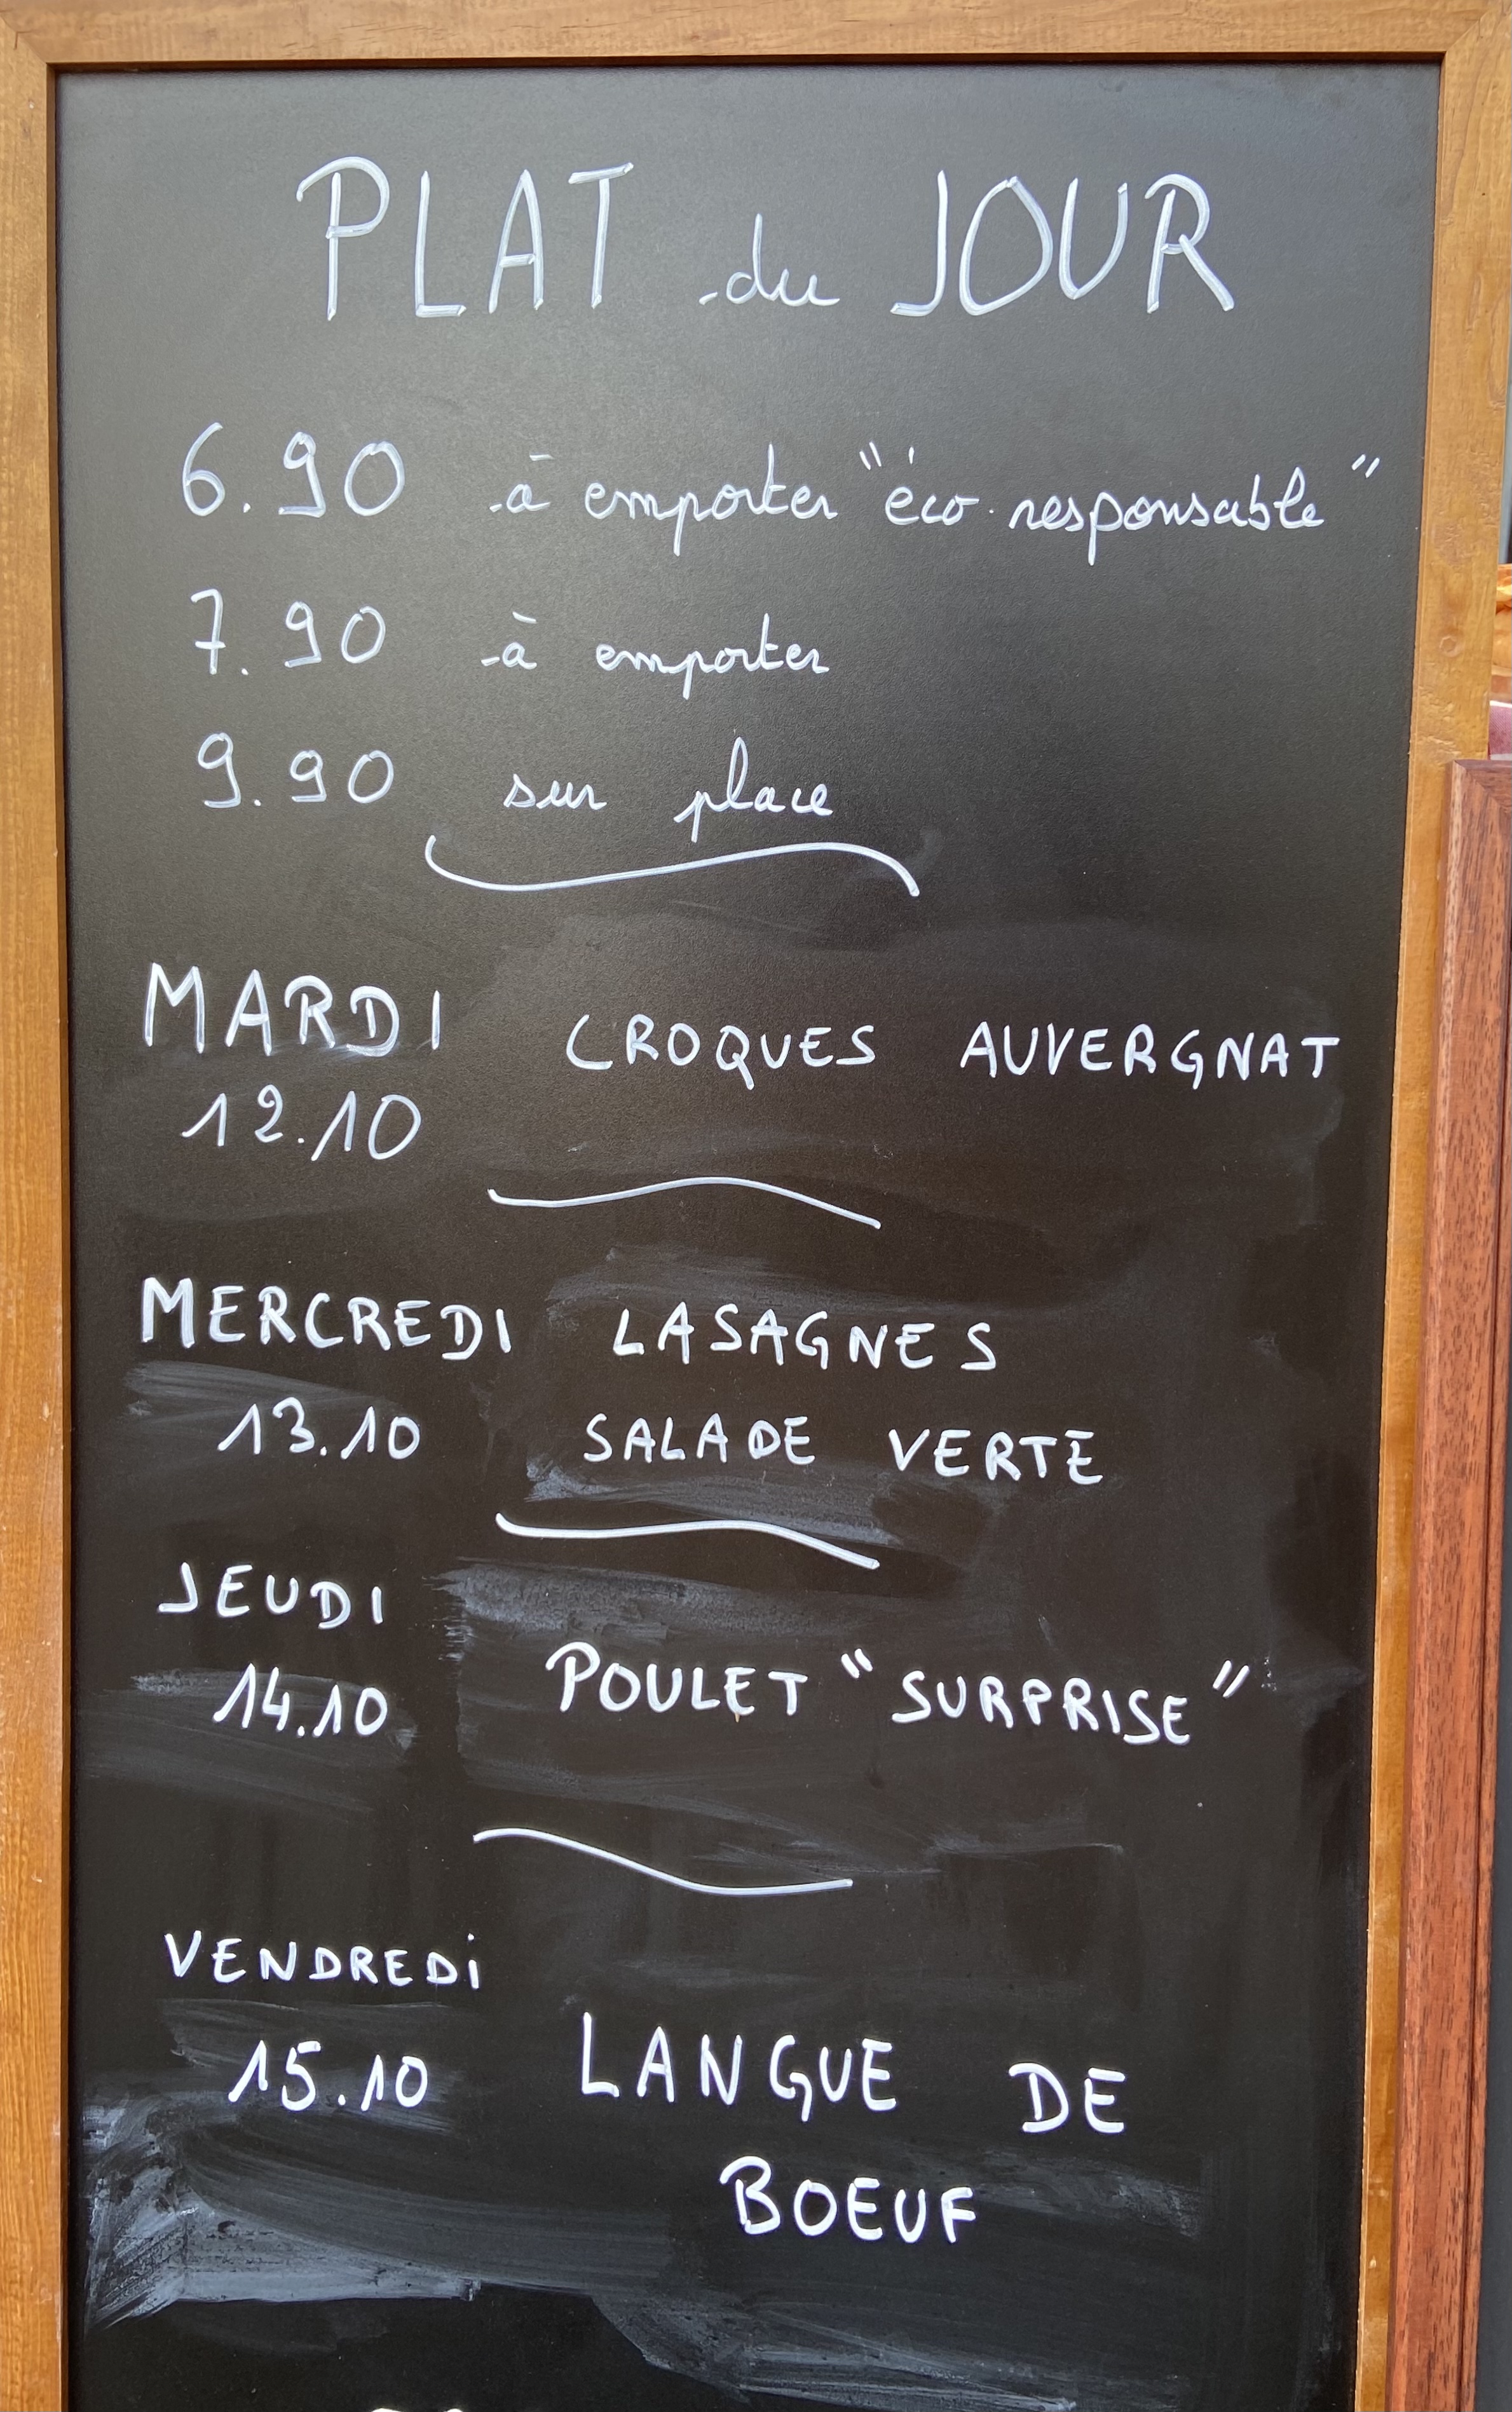 PLAT du JOUR
6.90 à emporter "éco.responsable"
7.90 à emporter
9.90 sur place
MARDI CROQUES AUVERGNAT
12.10
MERCREDI LASAGNES
13.10 SALADE VERTE
JEUDI
14.10 POULET "SURPRISE"
VENDREDI
15.10 LANGUE DE
BOEUF